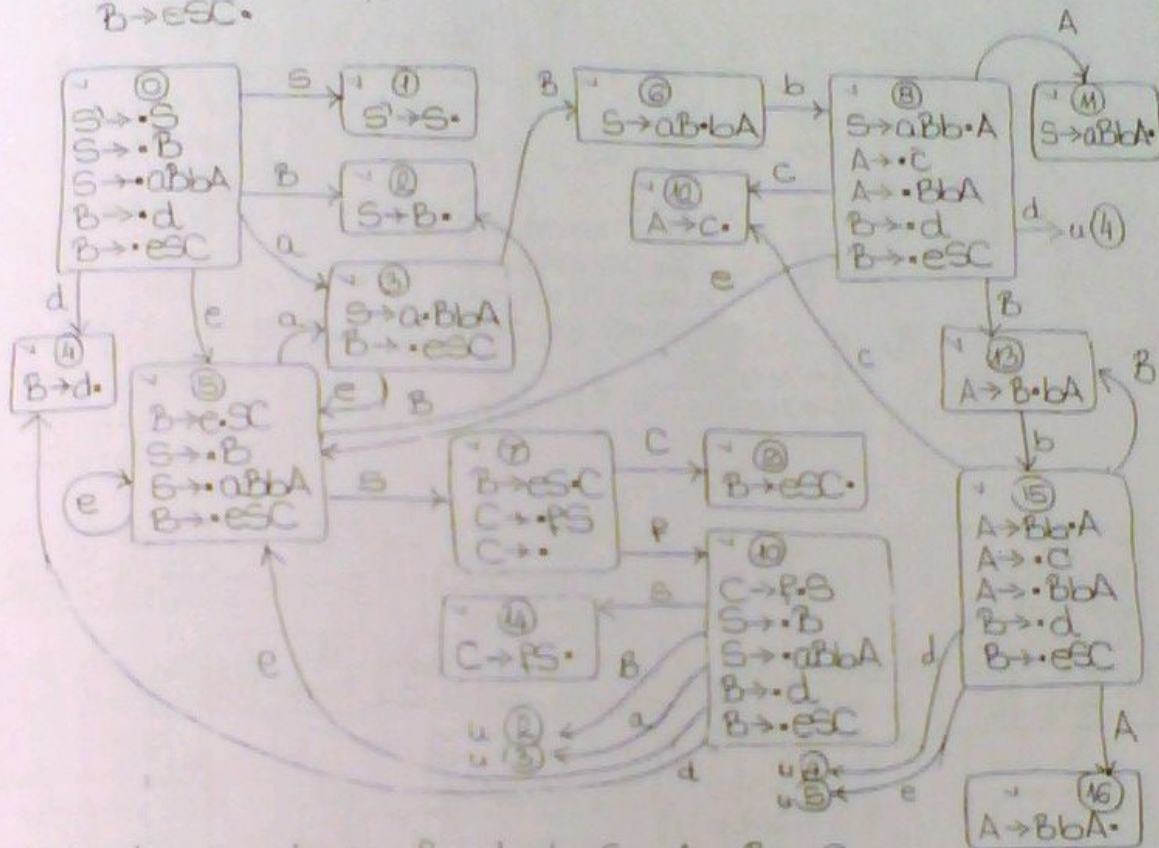 B→eSC•
0
S'→•S
S→•B
S→•aBbA
B→•d
B→•eSC
S
1
S'→S•
B
2
S→B•
a
3
S→a•BbA
B→•eSC
d
4
B→d•
e
5
B→e•SC
S→•B
S→•aBbA
B→•eSC
a
e
B
e
B
6
S→aB•bA
b
S→aBb•A
A→•c
A→•BbA
B→•d
B→•eSC
A
11
S→aBbA•
c
12
A→c•
d
u 4
e
B
13
A→B•bA
B
b
15
A→Bb•A
A→•c
A→•BbA
B→•d
B→•eSC
c
S
7
B→eS•C
C→•PS
C→•
C
8
B→eSC•
P
10
C→P•S
S→•B
S→•aBbA
B→•d
B→•eSC
S
14
C→PS•
B
u 2
a
u 3
e
d
d
u 4
e
u 5
A
16
A→BbA•